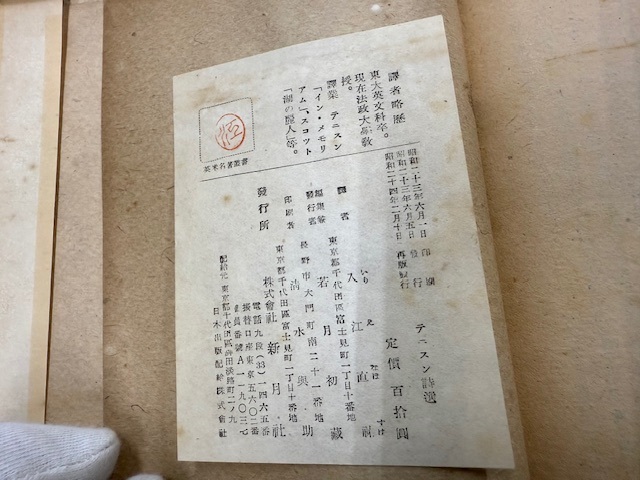 譯者略歷
東大英文科卒。
現在法政大學教
授。
譯業 テニスン
「イン・メモリ
アム」スコット
「湖の麗人」等。
英米名著叢書
昭和二十三年六月一日 印刷
昭和二十三年六月五日 發行
昭和二十四年二月十日 再版發行
テニスン詩選
定價 百拾圓
譯者 入江直祐
東京都千代田區富士見町一丁目十番地
編集兼
發行者 若月初藏
長野市大門町南二十一番地
印刷者 清水與助
東京都千代田區富士見町一丁目十番地
發行所 株式會社 新月社
電話九段(33)一四六五番
振替口座東京五六〇二番
會員番號A一一九〇三七
日本出版配給株式會社